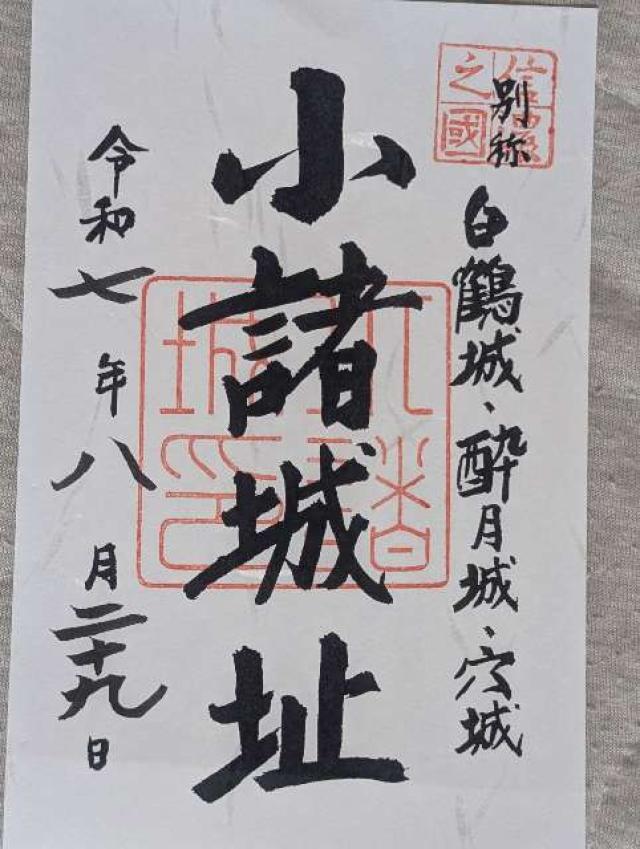 信濃之國
別称 白鶴城、酔月城、穴城
小諸城址
小諸城印
令和七年八月二十九日